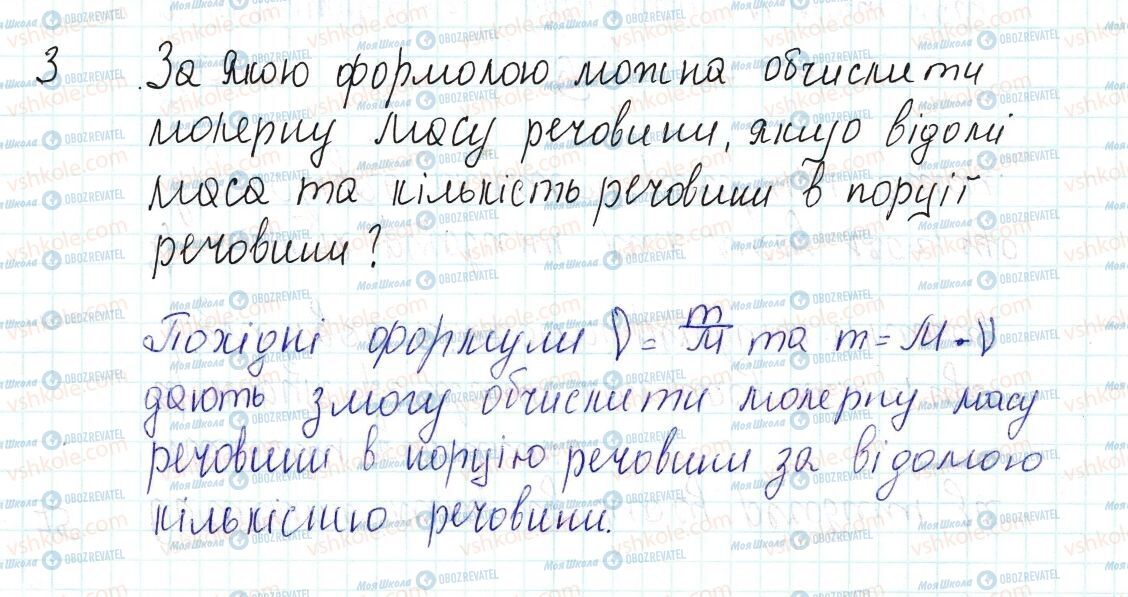 3 За якою формолою можна обчислити
молерну масу речовини, якщо відомі
маса та кількість речовини в порції
речовини?
Похідні формули V = m/M та m = M · V
дають змогу обчислити молерну масу
речовини в порцію речовини за відомою
кількістю речовини.